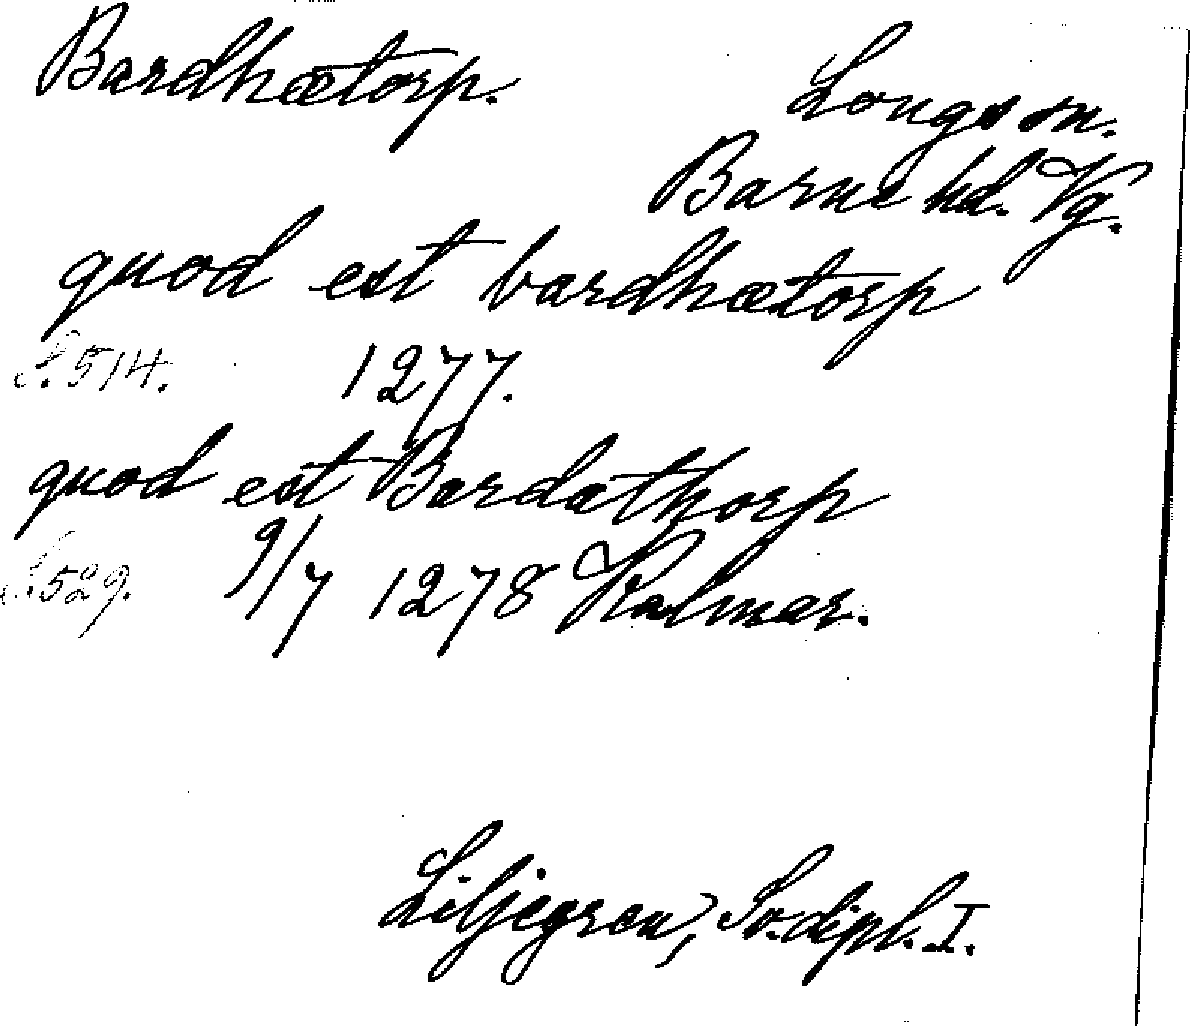 Bardhætorp.
Longs sn.
Barne hd. Vg.
quod est bardhætorp
S. 514. 1277.
quod est Bardathorp
S. 529. 9/7 1278 Kalmar.
Liljegren, Sv. dipl. I.